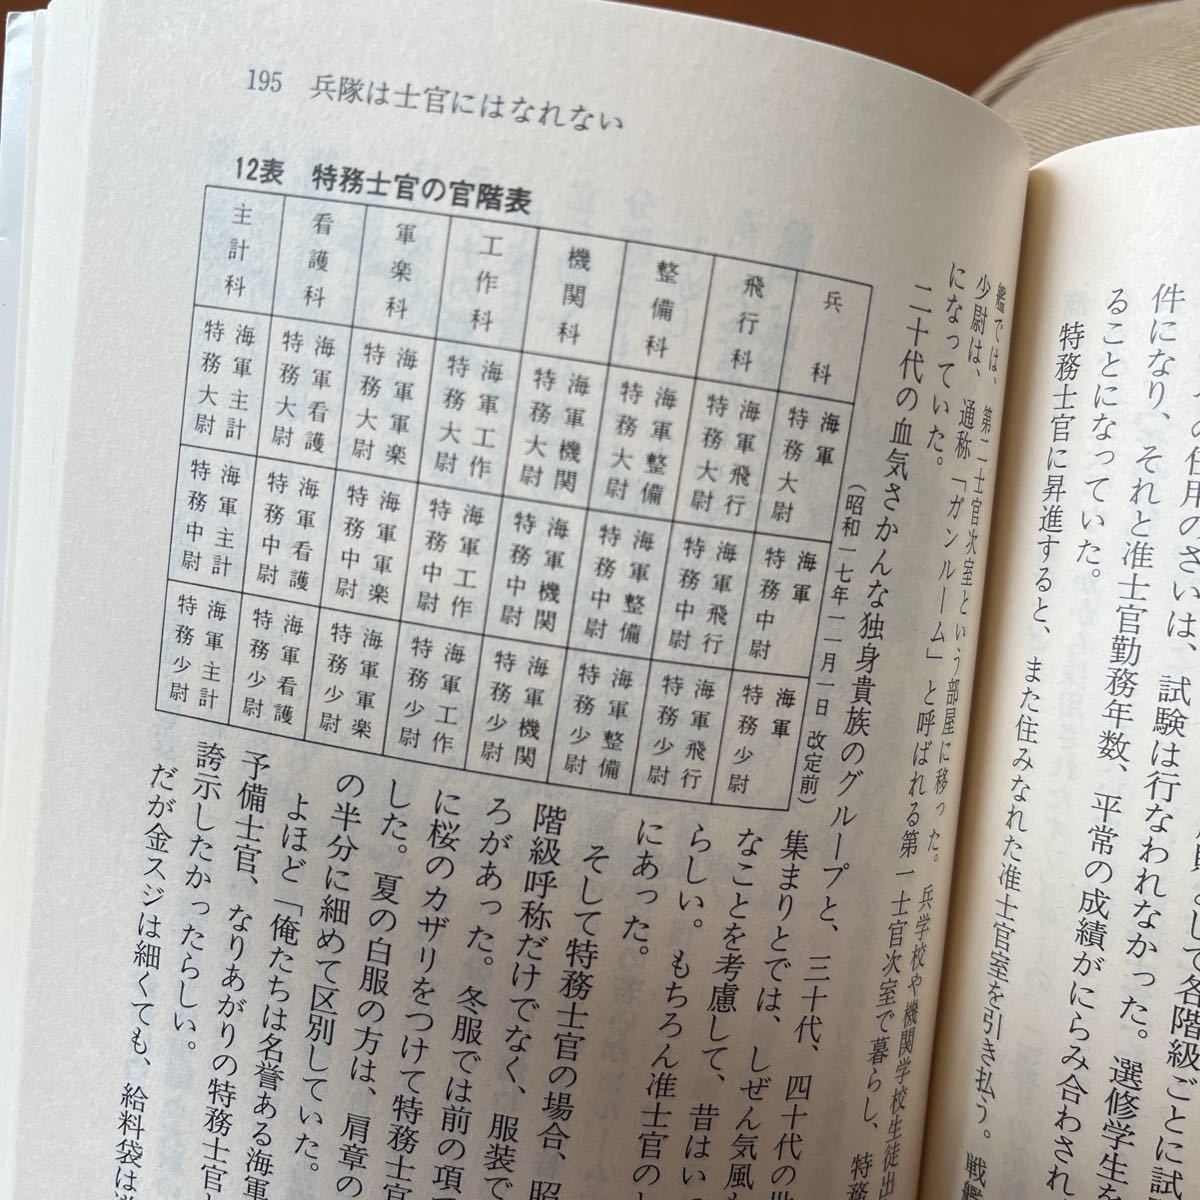 件になり、それと准士官勤務年数、平常の成績がにらみ合わされ
ることになっていた。
特務士官に昇進すると、また住みなれた准士官室を引き払う。戦艦
195 兵隊は士官にはなれない
艦では、第二士官次室という部屋に移った。兵学校や機関学校生徒出
少尉は、通称「ガンルーム」と呼ばれる第一士官次室で暮らし、特務
になっていた。
二十代の血気さかんな独身貴族のグループと、三十代、四十代の世
12表 特務士官の官階表
(昭和一七年一一月一日 改定前)
兵科 海軍特務大尉 海軍特務中尉 海軍特務少尉
飛行科 海軍飛行特務大尉 海軍飛行特務中尉 海軍飛行特務少尉
整備科 海軍整備特務大尉 海軍整備特務中尉 海軍整備特務少尉
機関科 海軍機関特務大尉 海軍機関特務中尉 海軍機関特務少尉
工作科 海軍工作特務大尉 海軍工作特務中尉 海軍工作特務少尉
軍楽科 海軍軍楽特務大尉 海軍軍楽特務中尉 海軍軍楽特務少尉
看護科 海軍看護特務大尉 海軍看護特務中尉 海軍看護特務少尉
主計科 海軍主計特務大尉 海軍主計特務中尉 海軍主計特務少尉
集まりとでは、しぜん気風も
なことを考慮して、昔はいっ
らしい。もちろん准士官の
にあった。
そして特務士官の場合、昭
階級呼称だけでなく、服装で
ろがあった。冬服では前の項で
に桜のカザリをつけて特務士官
した。夏の白服の方は、肩章の
の半分に細めて区別していた。
よほど「俺たちは名誉ある海軍
予備士官、なりあがりの特務士官と
誇示したかったらしい。
だが金スジは細くても、給料袋は